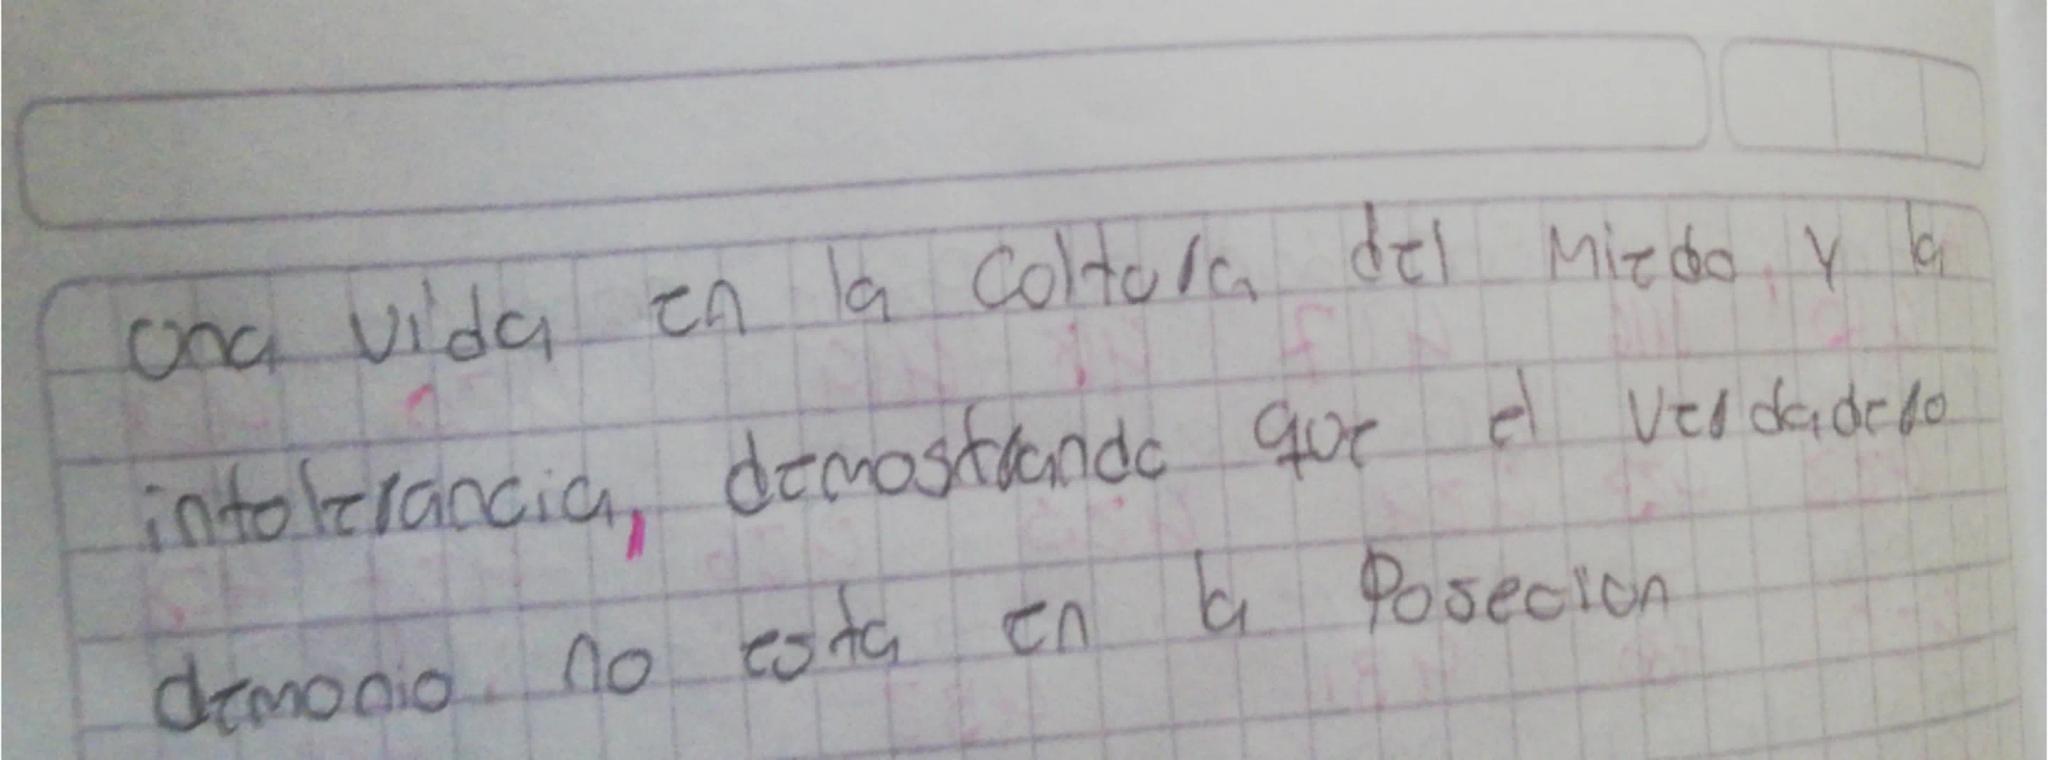 una vida en la cultura del Miedo y la
intolerancia, demostrando que el verdadero
demonio no esta en la Posecion